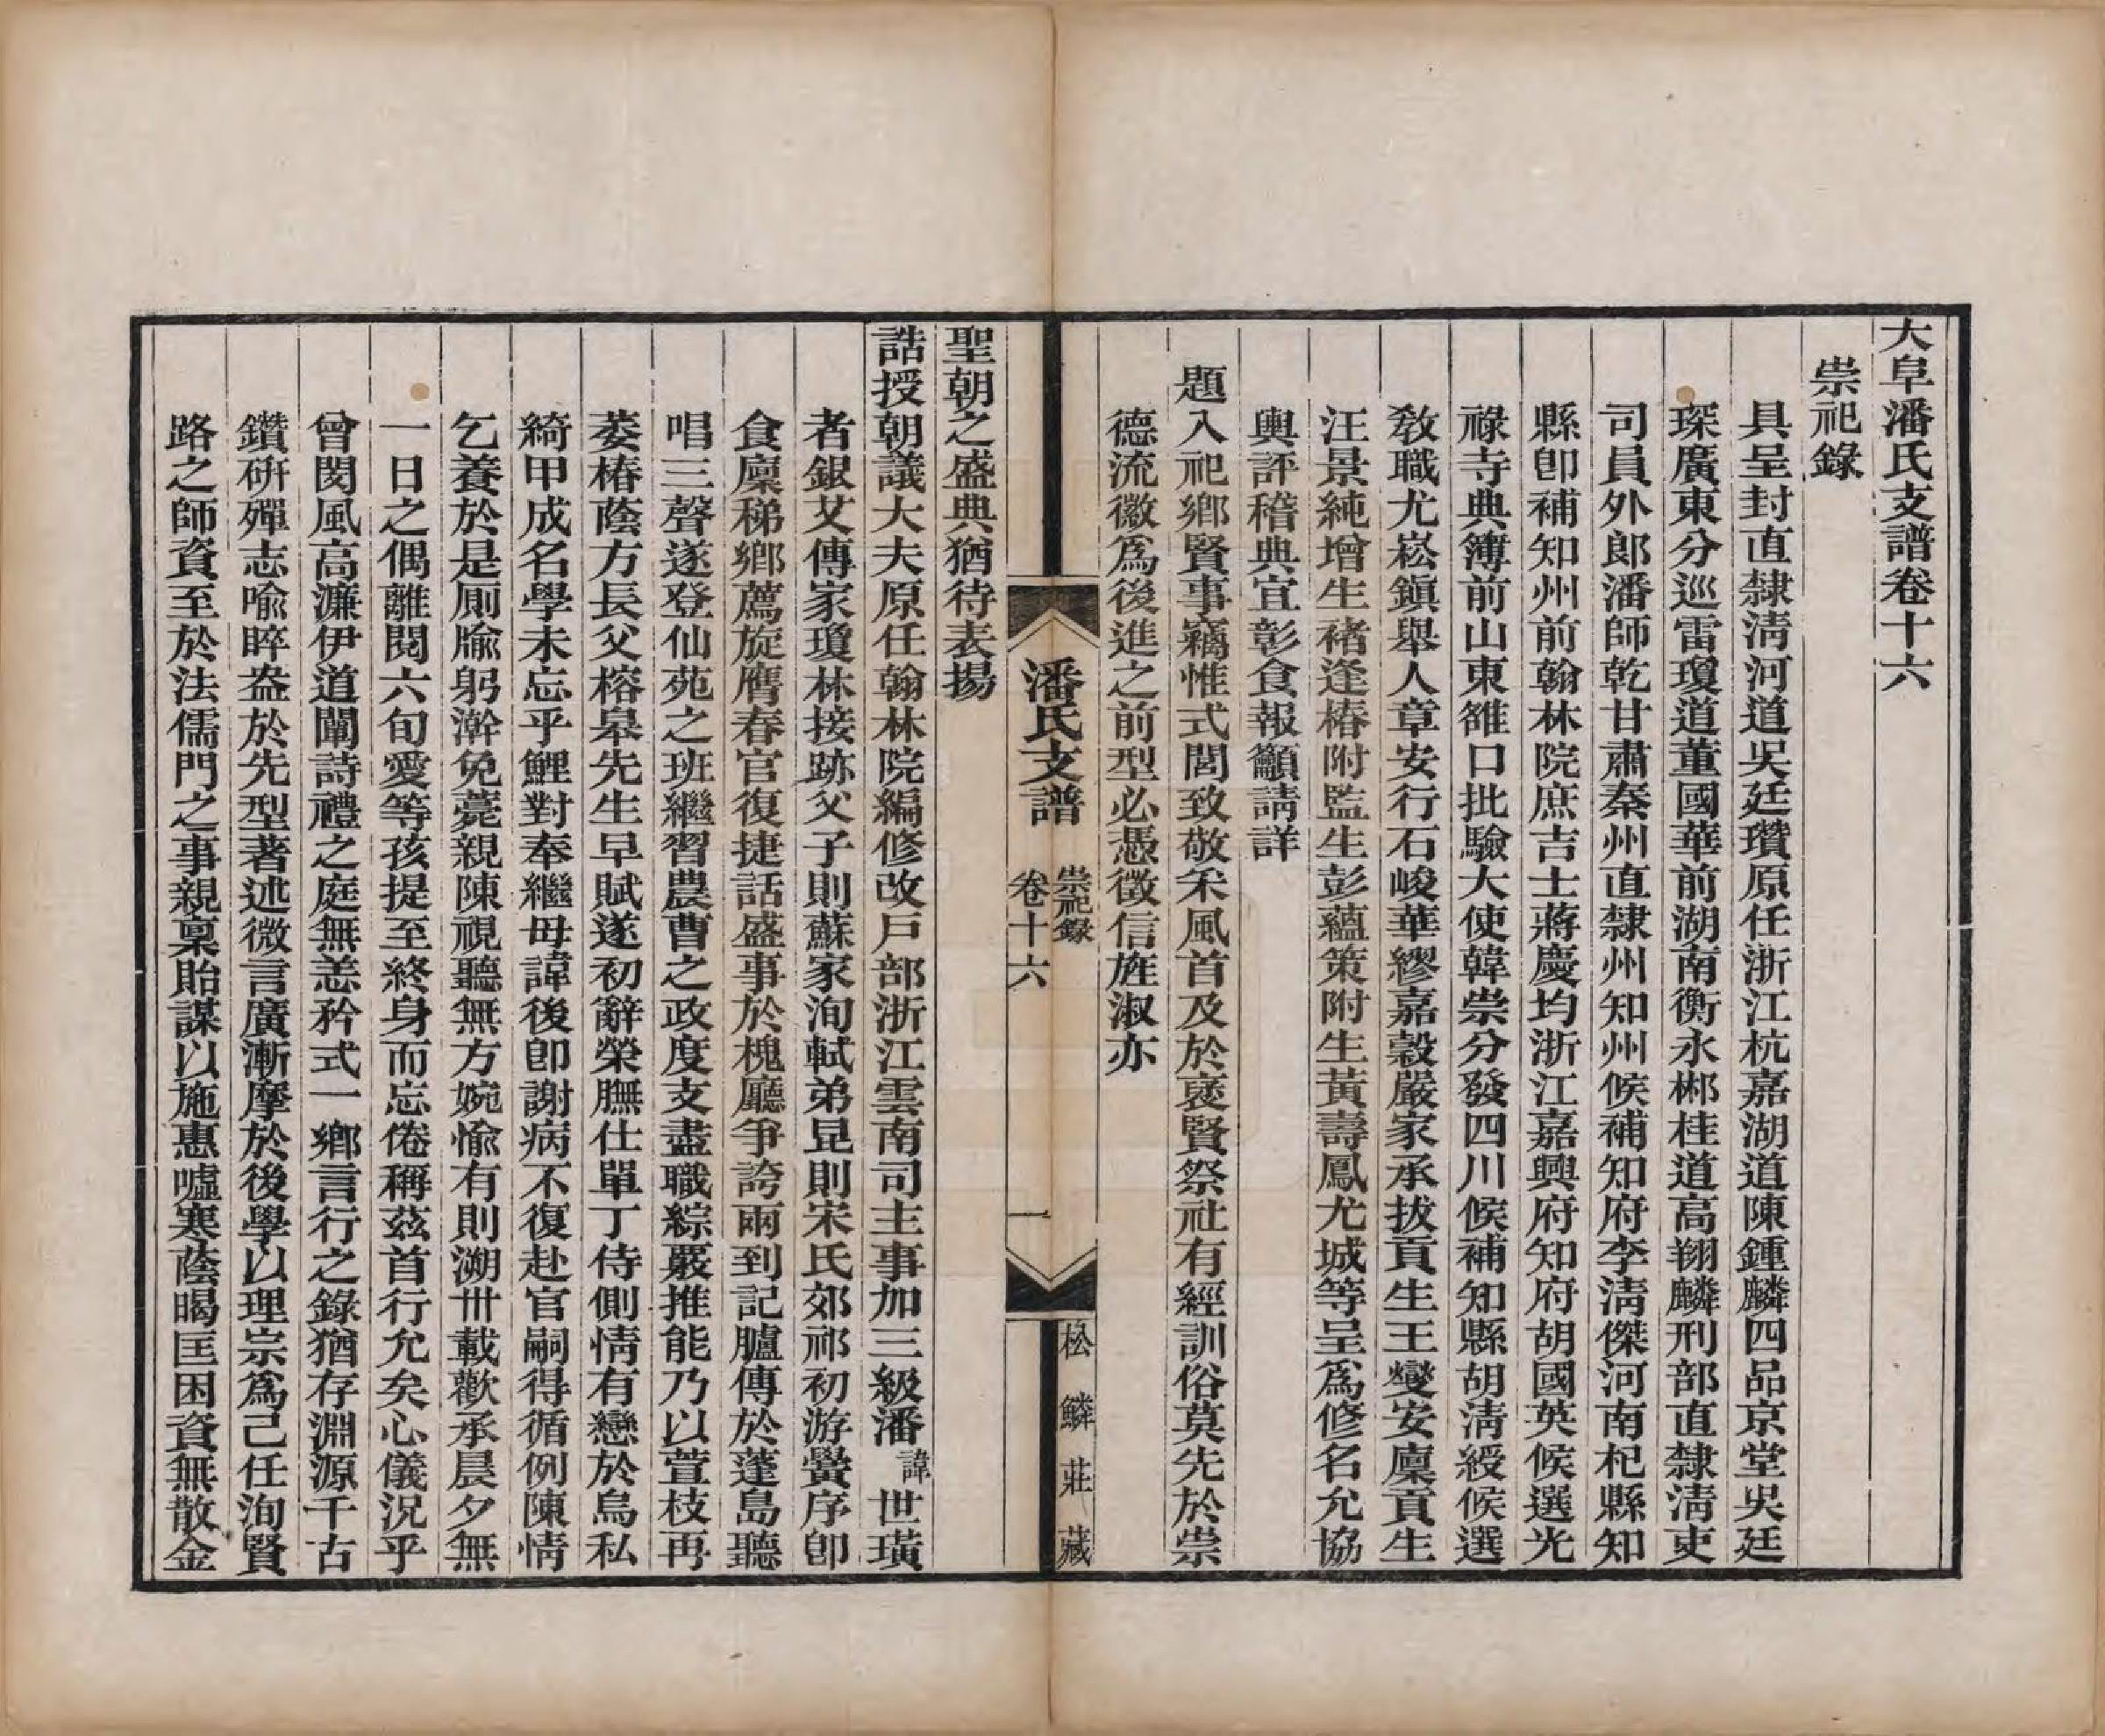 大阜潘氏支譜卷十六
崇祀錄
具呈封直隸清河道吳廷瓚原任浙江杭嘉湖道陳鍾麟四品京堂吳廷
琛廣東分巡雷瓊道董國華前湖南衡永郴桂道高翔麟刑部直隸清吏
司員外郎潘師乾甘肅秦州直隸州知州候補知府李清傑河南杞縣知
縣卽補知州前翰林院庶吉士蔣慶均浙江嘉興府知府胡國英候選光
祿寺典簿前山東雒口批驗大使韓崇分發四川候補知縣胡清綬候選
敎職尤崧鎭舉人章安行石峻華繆嘉穀嚴家承拔貢生王燮安廩貢生
汪景純增生褚逢椿附監生彭蘊策附生黃壽鳳尤城等呈爲修名允協
輿評稽典宜彰食報籲請詳
題入祀鄉賢事竊惟式閭致敬釆風首及於褒賢祭社有經訓俗莫先於崇
德流徽爲後進之前型必憑徵信旌淑亦
潘氏支譜
崇祀錄
卷十六
一
松鱗莊藏
聖朝之盛典猶待表揚
誥授朝議大夫原任翰林院編修改戶部浙江雲南司主事加三級潘諱世璜
者銀艾傳家瓊林接跡父子則蘇家洵軾弟昆則宋氏郊祁初游黌序卽
食廩稊鄉薦旋膺春官復捷話盛事於槐廳爭誇兩到記臚傳於蓬島聽
唱三聲遂登仙苑之班繼習農曹之政度支盡職綜覈推能乃以萱枝再
萎椿蔭方長父榕皋先生早賦遂初辭榮膴仕單丁侍側情有戀於烏私
綺甲成名學未忘乎鯉對奉繼母諱後卽謝病不復赴官嗣得循例陳情
乞養於是厠牏躬澣免薧親陳視聽無方婉愉有則溯卅載歡承晨夕無
一日之偶離閱六旬愛等孩提至終身而忘倦稱茲首行允矣心儀況乎
曾閔風高濂伊道闡詩禮之庭無恙矜式一鄉言行之錄猶存淵源千古
鑽硏殫志喻睟盎於先型著述微言廣漸摩於後學以理宗爲己任洵賢
路之師資至於法儒門之事親稟貽謀以施惠噓寒蔭暍匡困資無散金